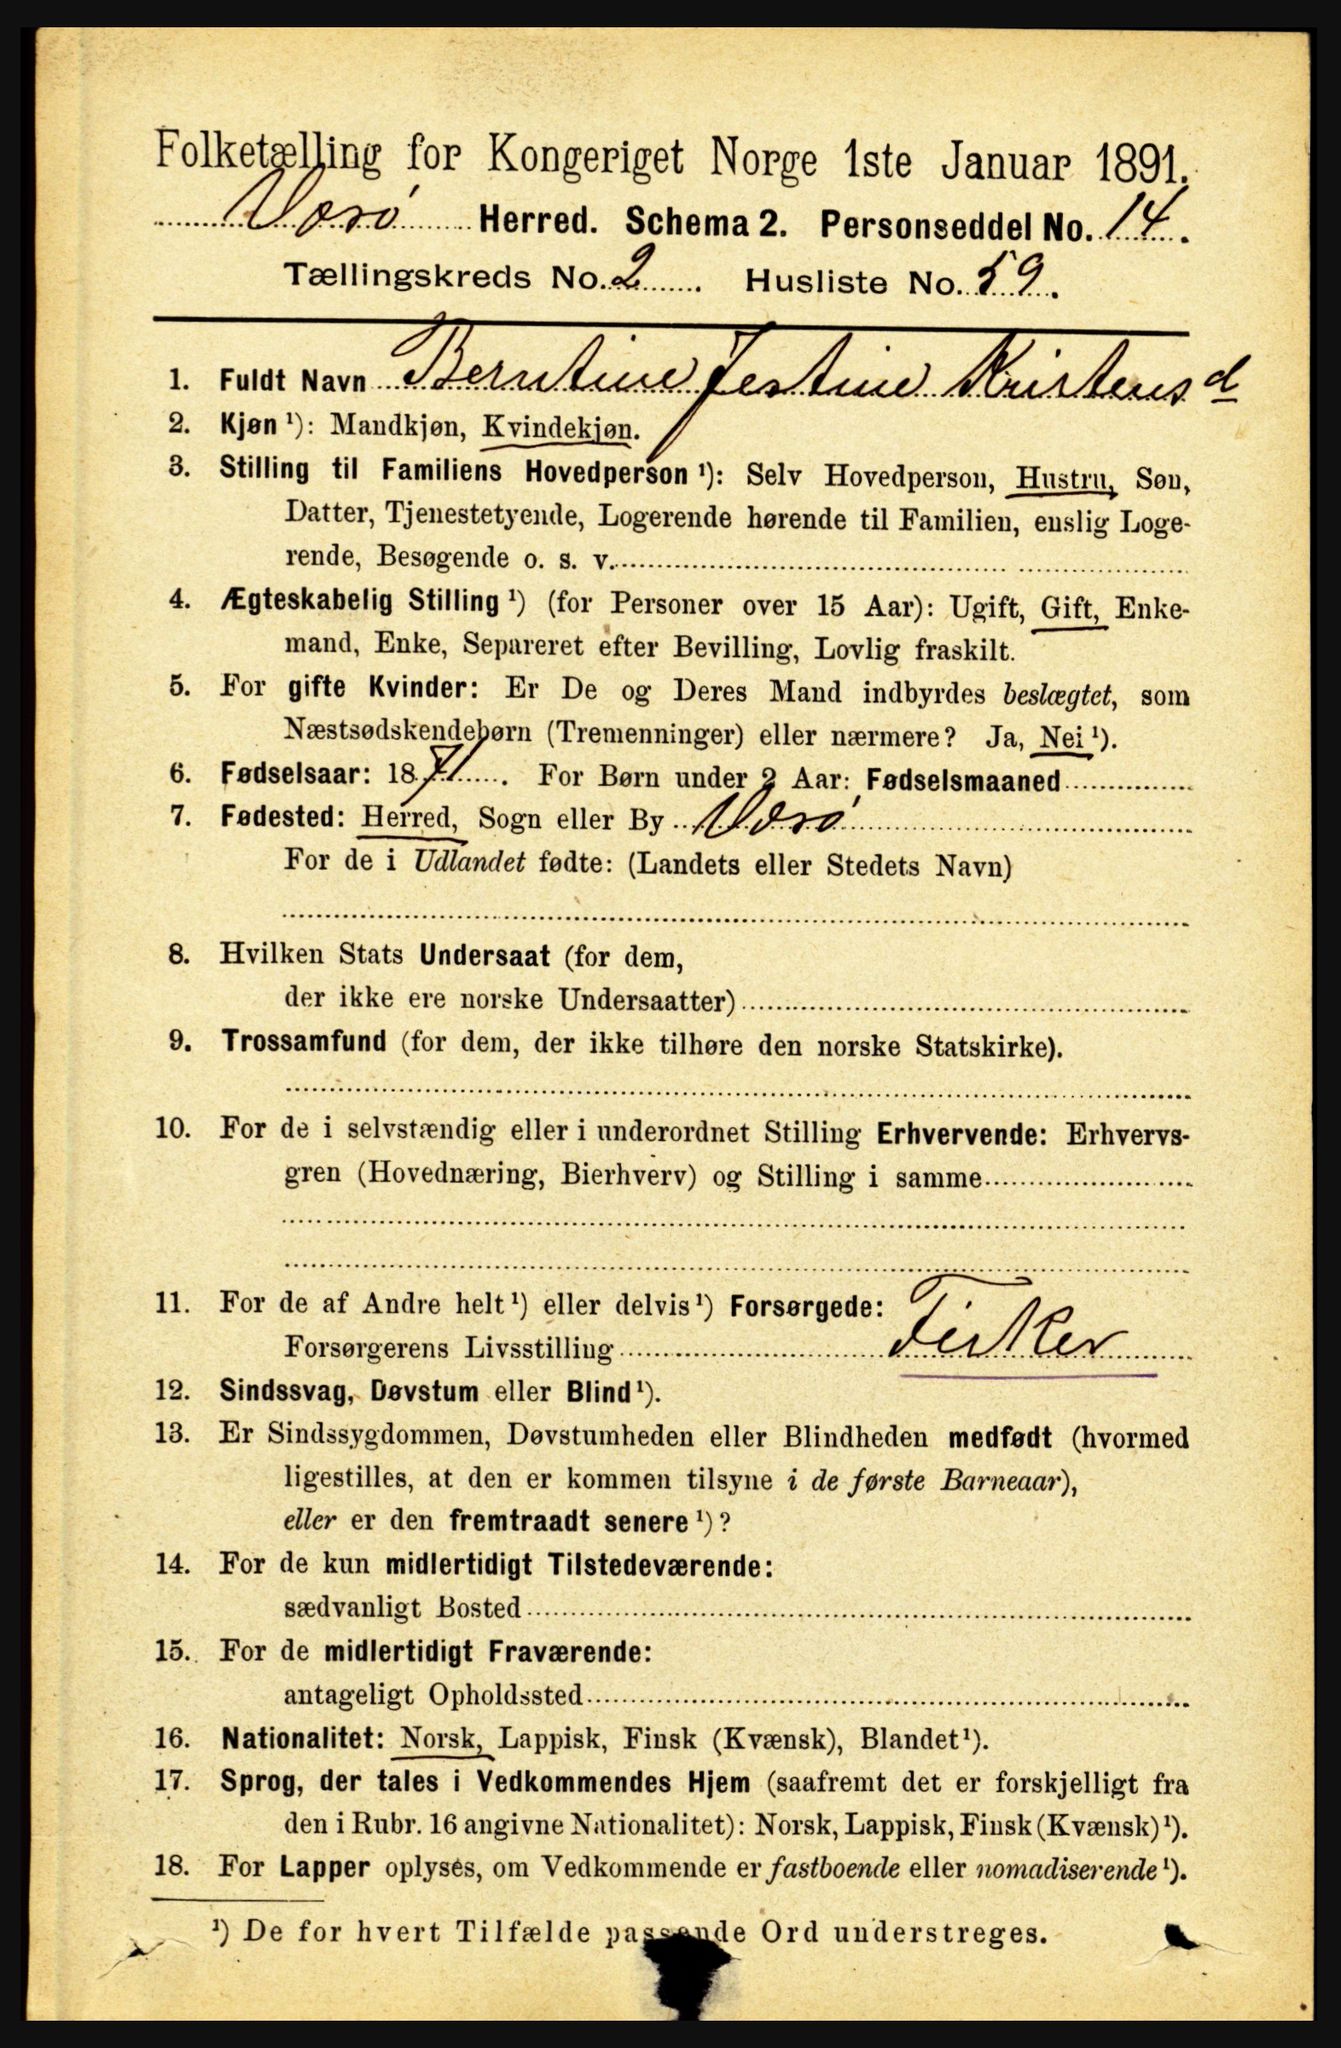 Folketælling for Kongeriget Norge 1ste Januar 1891.
Værø Herred. Schema 2. Personseddel No. 14.
Tællingskreds No. 2. Husliste No. 59.
1. Fuldt Navn Berntine Jestine Kristensd
2. Kjøn ¹): Mandkjøn, Kvindekjøn.
3. Stilling til Familiens Hovedperson ¹): Selv Hovedperson, Hustru, Søn,
Datter, Tjenestetyende, Logerende hørende til Familien, enslig Loge-
rende, Besøgende o. s. v.
4. Ægteskabelig Stilling ¹) (for Personer over 15 Aar): Ugift, Gift, Enke-
mand, Enke, Separeret efter Bevilling, Lovlig fraskilt.
5. For gifte Kvinder: Er De og Deres Mand indbyrdes beslægtet, som
Næstsødskendebørn (Tremenninger) eller nærmere? Ja, Nei ¹).
6. Fødselsaar: 1871. For Børn under 2 Aar: Fødselsmaaned
7. Fødested: Herred, Sogn eller By Værø
For de i Udlandet fødte: (Landets eller Stedets Navn)
8. Hvilken Stats Undersaat (for dem,
der ikke ere norske Undersaatter)
9. Trossamfund (for dem, der ikke tilhøre den norske Statskirke).
10. For de i selvstændig eller i underordnet Stilling Erhvervende: Erhvervs-
gren (Hovednæring, Bierhverv) og Stilling i samme
11. For de af Andre helt ¹) eller delvis ¹) Forsørgede:
Forsørgerens Livsstilling Fisker
12. Sindssvag, Døvstum eller Blind ¹).
13. Er Sindssygdommen, Døvstumheden eller Blindheden medfødt (hvormed
ligestilles, at den er kommen tilsyne i de første Barneaar),
eller er den fremtraadt senere ¹)?
14. For de kun midlertidigt Tilstedeværende:
sædvanligt Bosted
15. For de midlertidigt Fraværende:
antageligt Opholdssted
16. Nationalitet: Norsk, Lappisk, Finsk (Kvænsk), Blandet ¹).
17. Sprog, der tales i Vedkommendes Hjem (saafremt det er forskjelligt fra
den i Rubr. 16 angivne Nationalitet): Norsk, Lappisk, Finsk (Kvænsk) ¹).
18. For Lapper oplyses, om Vedkommende er fastboende eller nomadiserende ¹).
¹) De for hvert Tilfælde passende Ord understreges.